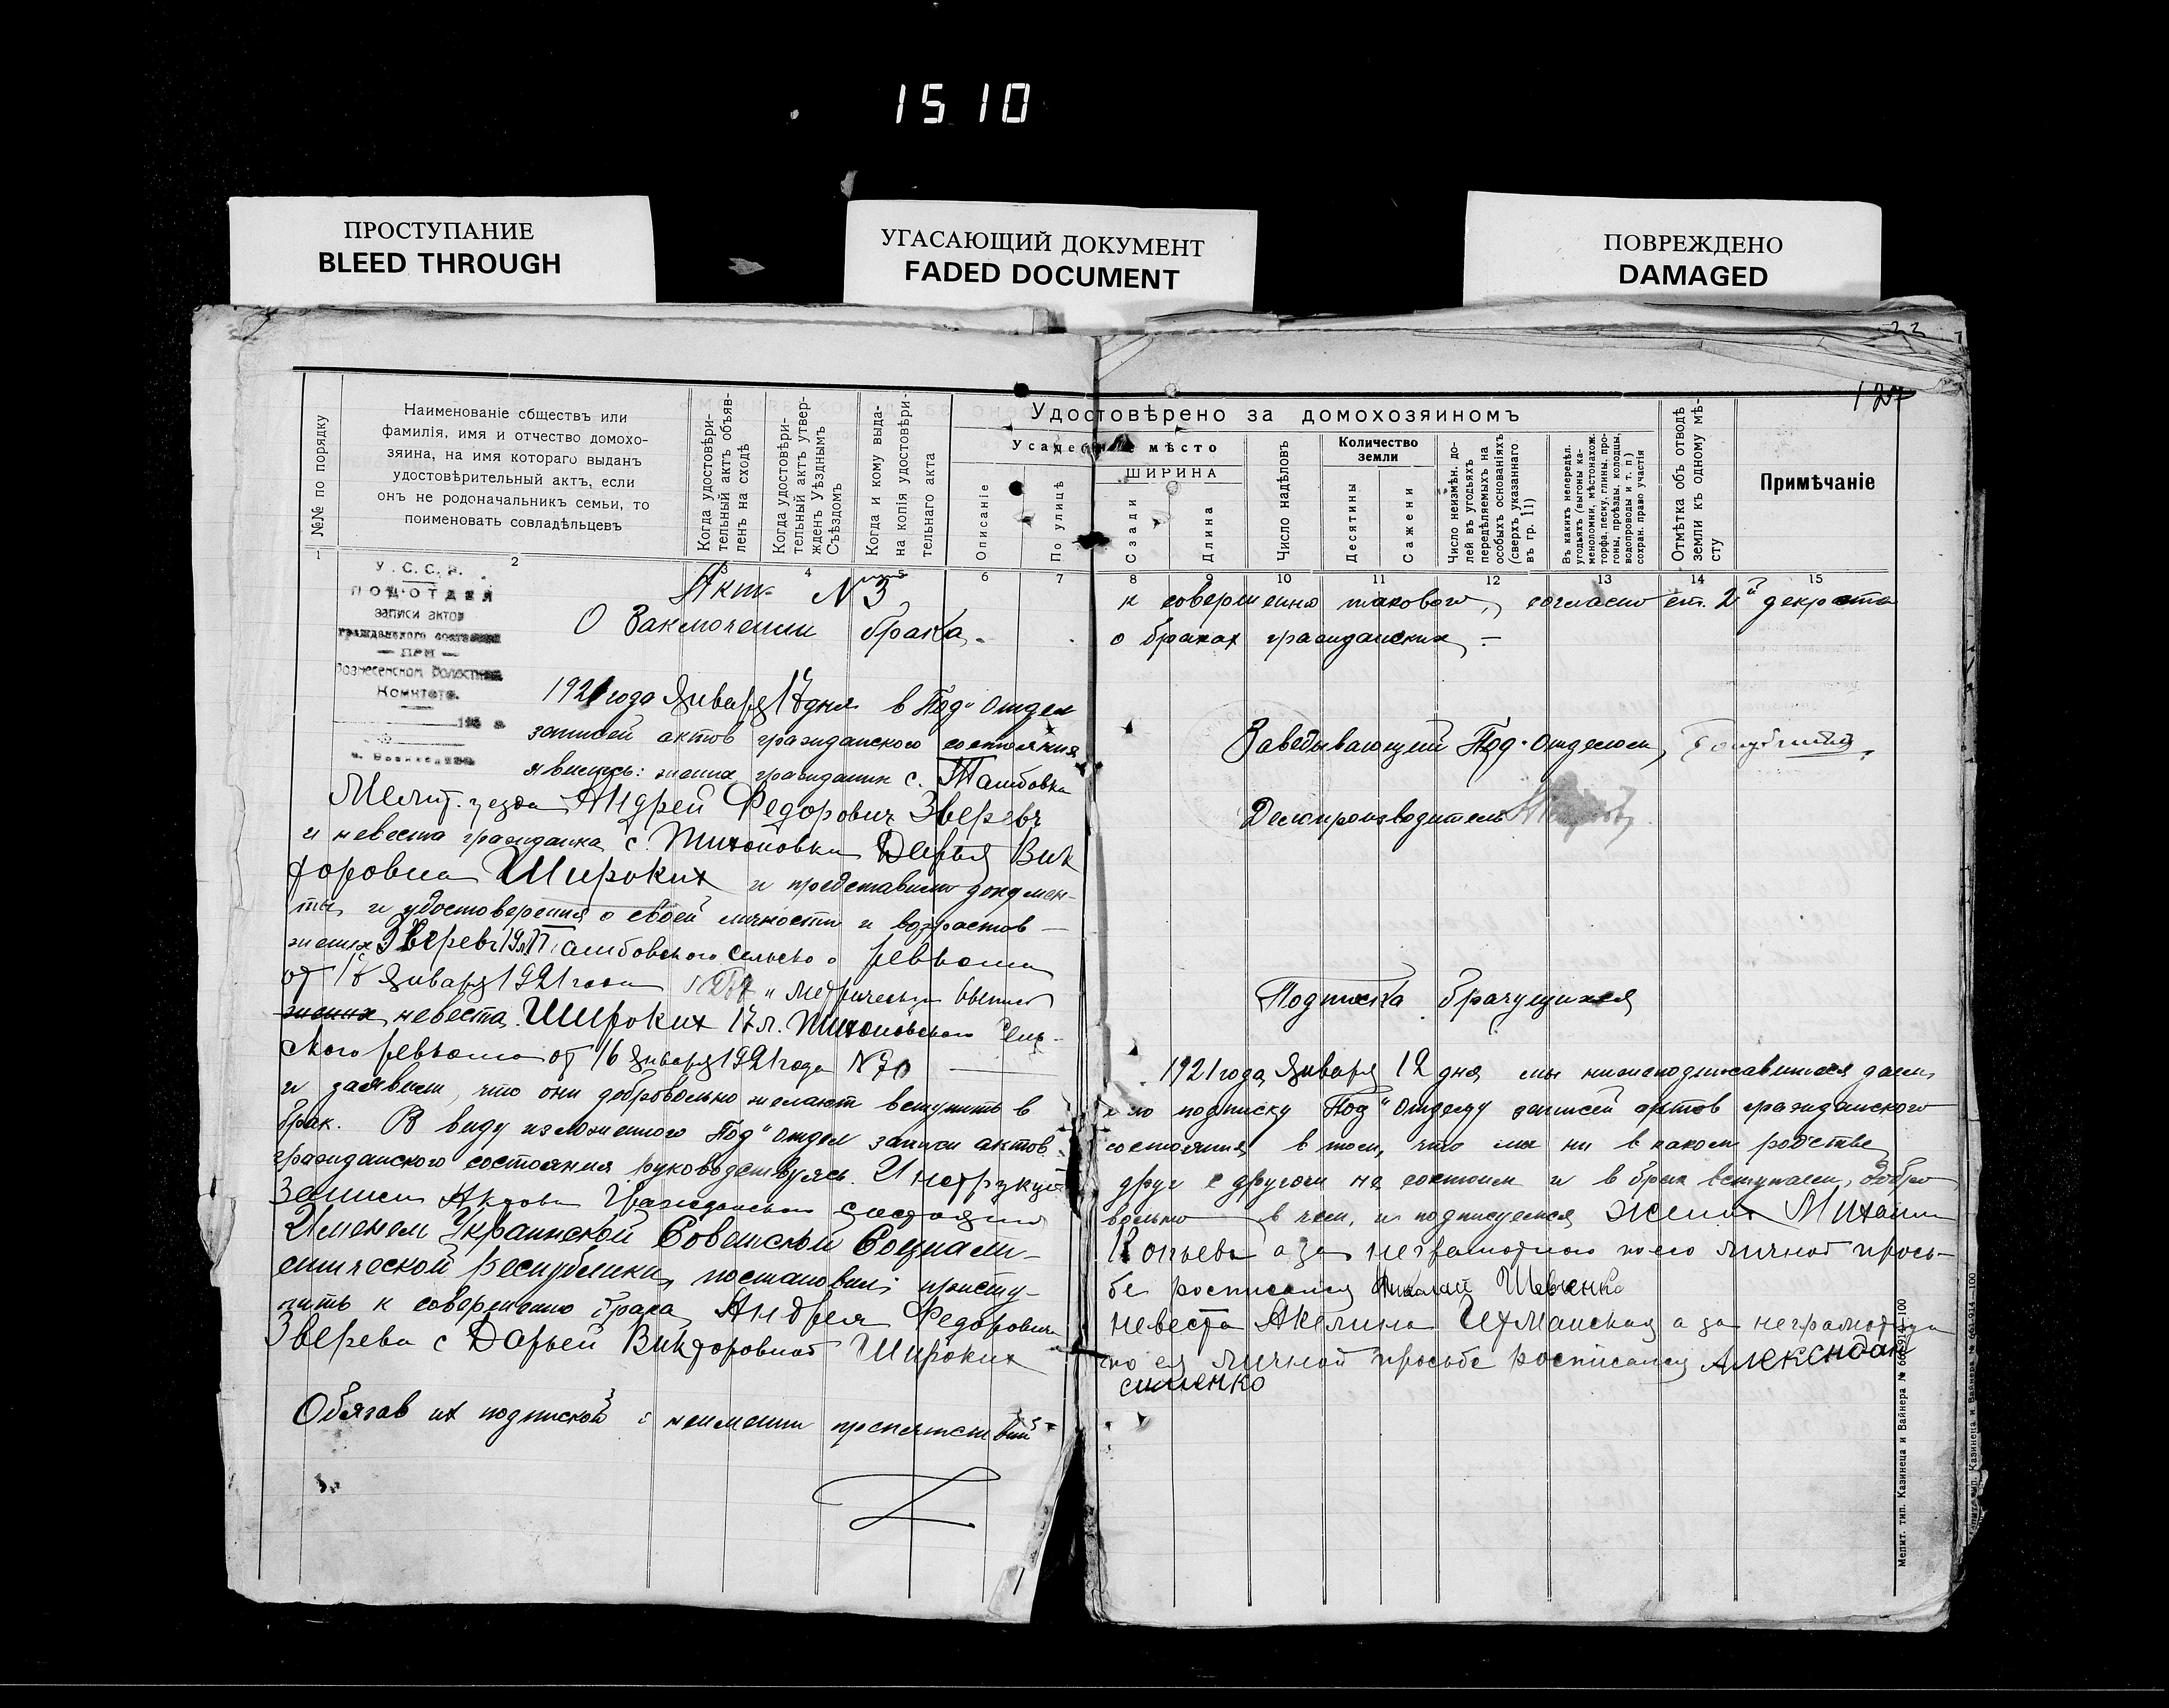 15 10
ПРОСТУПАНИЕ
BLEED THROUGH
УГАСАЮЩИЙ ДОКУМЕНТ
FADED DOCUMENT
ПОВРЕЖДЕНО
DAMAGED
№№ по порядку
Наименованіе обществъ или
фамилія, имя и отчество домохо-
зяина, на имя котораго выданъ
удостовѣрительный актъ, если
онъ не родоначальникъ семьи, то
поименовать совладѣльцевъ
Когда удостовѣри-
тельный актъ объяв-
ленъ на сходѣ
Когда удостовѣри-
тельный актъ утвер-
жденъ Уѣзднымъ
Съѣздомъ
Когда и кому выда-
на копія удостовѣри-
тельнаго акта
Удостовѣрено за домохозяиномъ
Усадебное мѣсто
Описаніе
По улицѣ
ШИРИНА
Сзади
Длина
Число надѣловъ
Количество
земли
Десятины
Сажени
Число неизмѣн. до-
лей въ угодьяхъ
передѣляемыхъ на
особыхъ основаніяхъ
(сверхъ указаннаго
въ гр. 11)
Въ какихъ непередѣл.
угодьяхъ (выгоны ка-
меноломни, мѣстонахож.
торфа, песку, глины, про-
гоны, проѣзды, колодцы,
водопроводы и т. п.)
сохран. право участія
Отмѣтка объ отводѣ
земли къ одному мѣ-
сту
Примѣчаніе
1 2 4 5 6 7 8 9 10 11 12 13 14 15
У.С.С.Р.
ПОДОТДЕЛ
записи актов
гражданского состояния
— ПРИ —
Вознесенском Волостном
Комитете.
Акт № 3
О Заключении брака.
1921 года Января 17 дня в Под"отдел
записей актов гражданского состояния
явились: жених гражданин с. Тамбовка
Мелит. уезда Андрей Федорович Зверевъ
и невеста гражданка с. Тихоновки Дарья Вик
торовна Широких и представили докумен-
ты и удостоверения о своей личности и возрастов —
жених Зверевъ 19 л Тамбовского Сельско о ревкома
от 16 Января 1921 года
жених невеста Широких 17 л. Тихоновского Сель-
ского ревкома от 16 Января 1921 года № 70
и заявили, что они добровольно желают вступить в
брак. В виду изложенного Под"отдел записи актов
гражданского состояния руководствуясь Инструкции
Записи Актов Гражданского состояния
Именем Украинской Советской Социали-
стической Республики постановил: присту-
пить к совершению брака Андрея Федоровича
Зверева с Дарьей Викторовной Широких
Обязав их подпиской о неимении препятствий
к совершению такового, согласно ст. 2й декрета
о браках гражданских. —
Заведывающий Под-отделом,
Делопроизводитель
Подписка брачущихся
1921 года Января 12 дня мы нижеподписавшиеся дали
сию подписку Под"отделу записей актов гражданского
состояния в том, что мы ни в каком родстве
друг с другом не состоим и в брак вступаем, добро
вольно в чем, и подписуемся Жених Михаил
Копьева а за неграмотного по его личной прось-
бе росписался Николай Шевченко
невеста Акелина Ихманская а за неграмотную
по ея личной просьбе росписался Александр
симиенко
Мелит. тип. Казинеца и Вайнера № 661-914—100